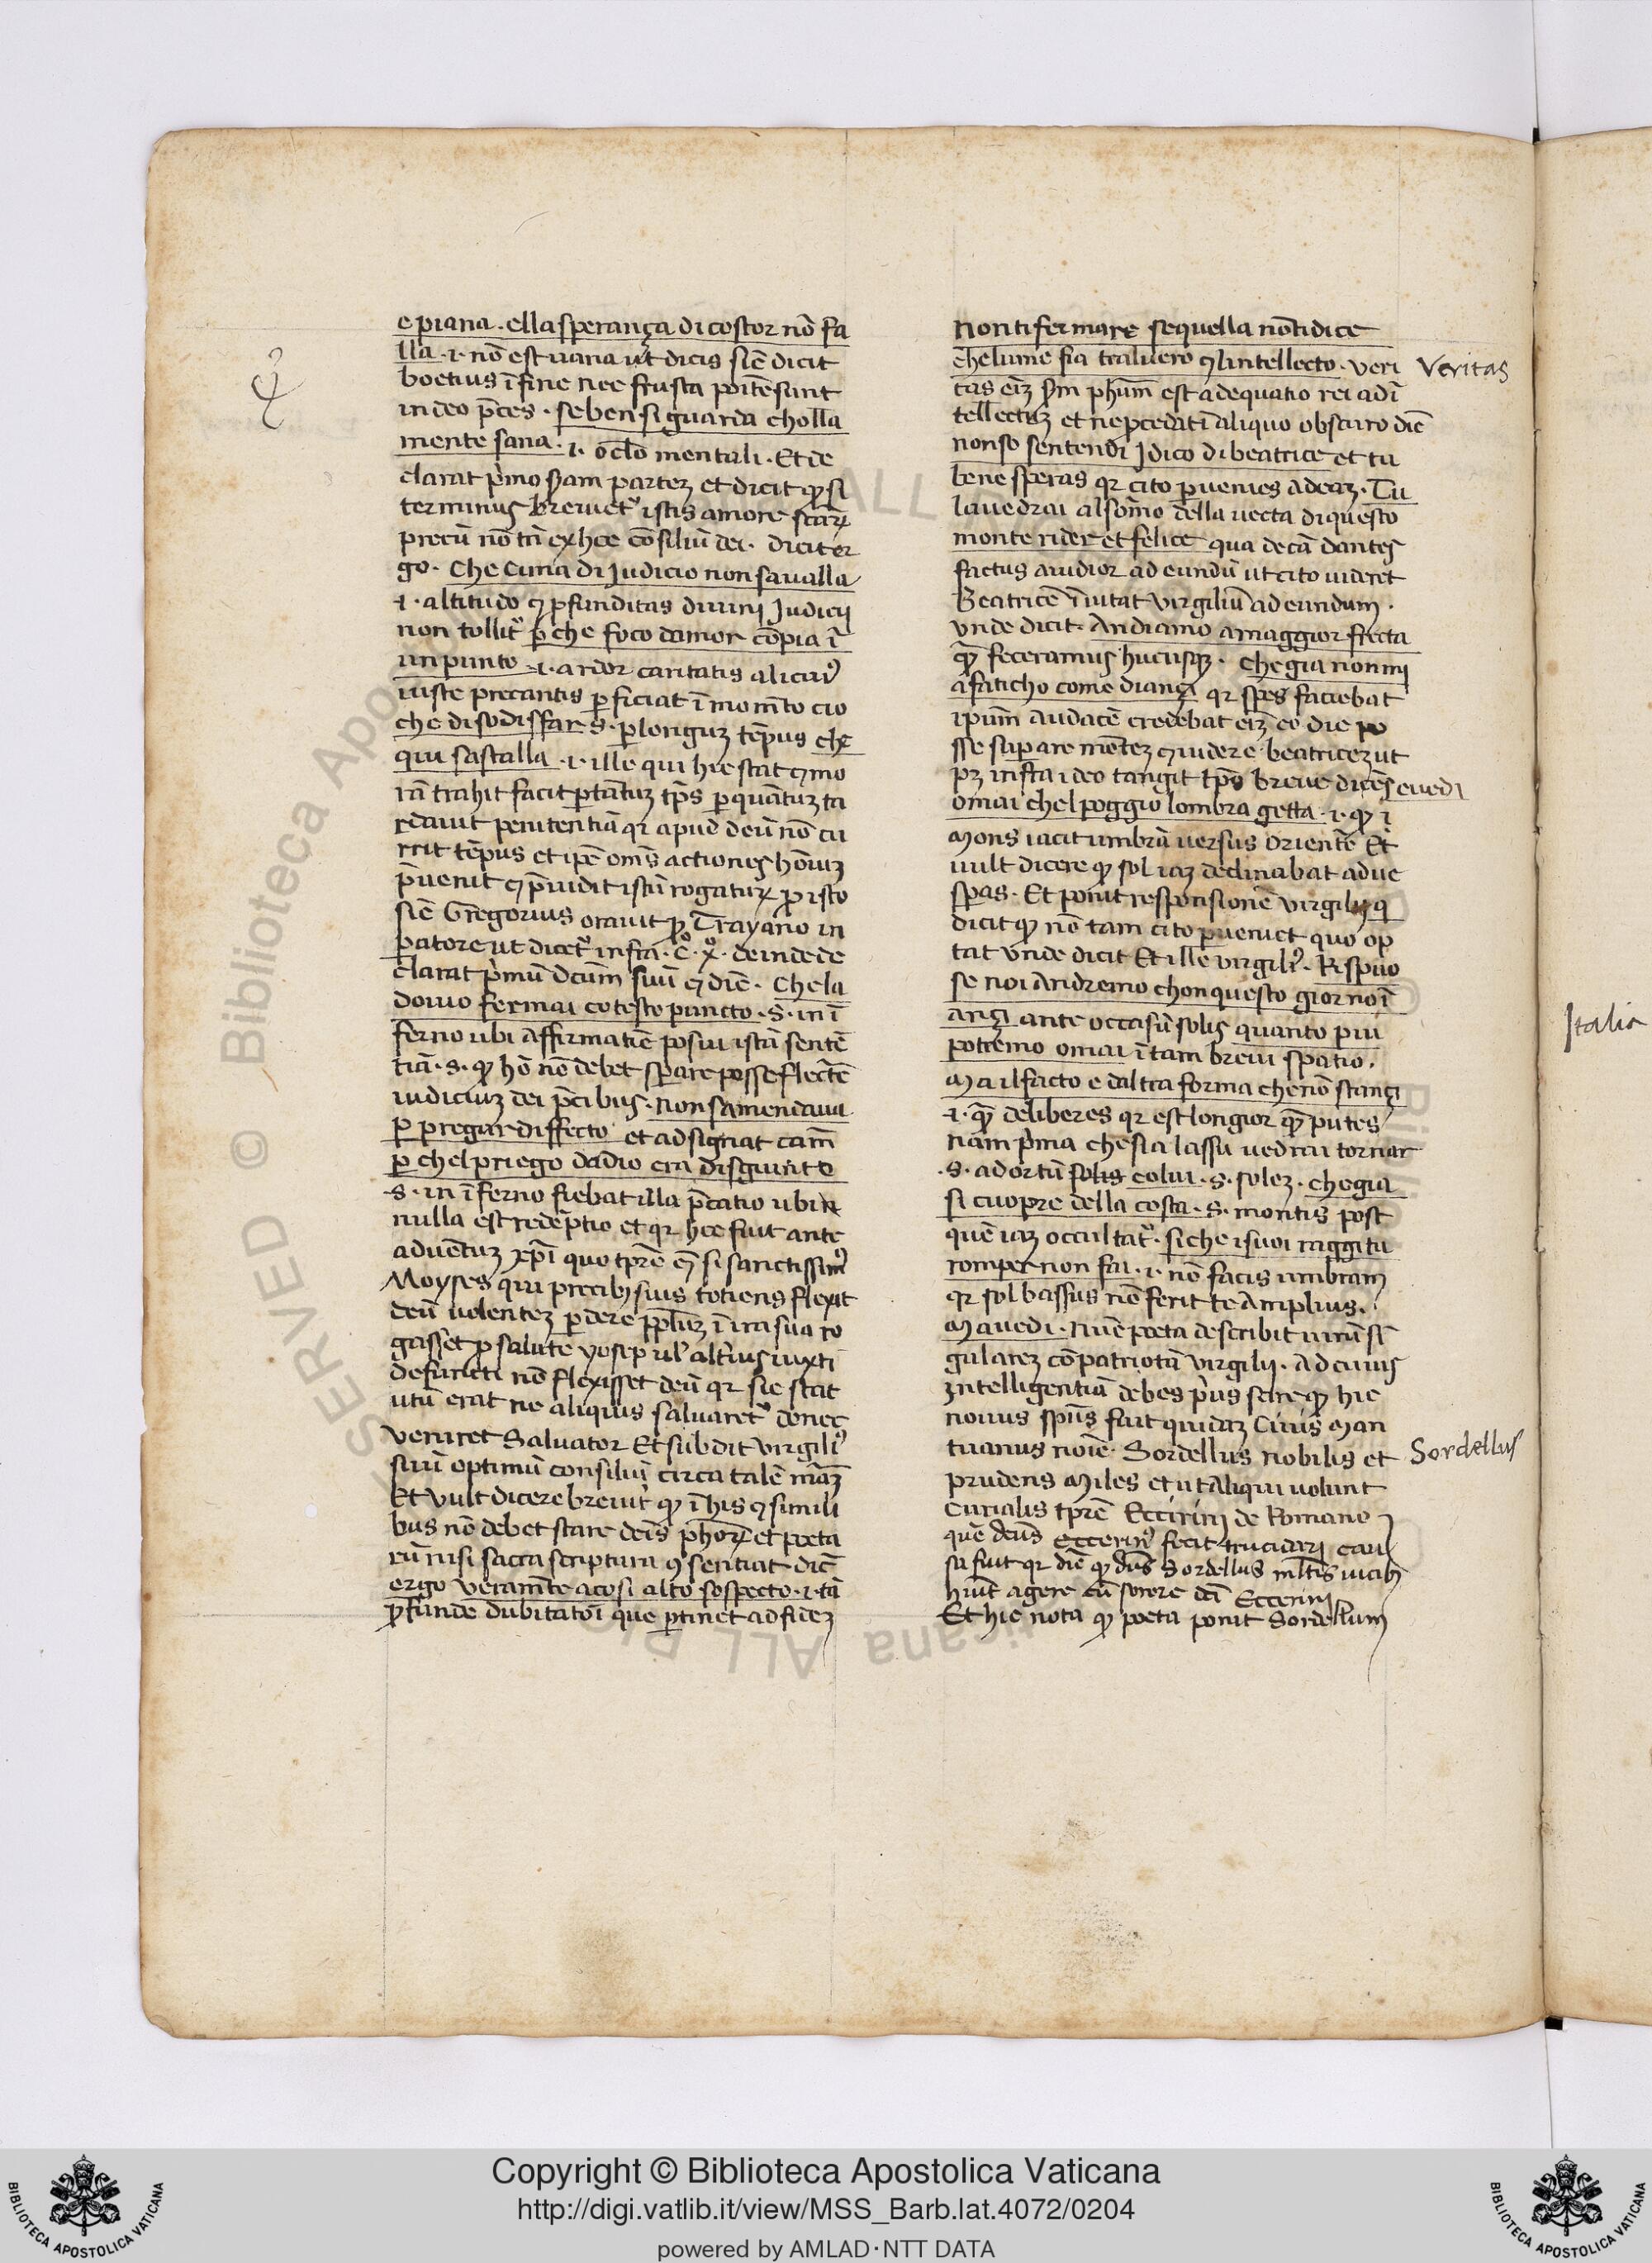 e piana . ella sperança di costor nō fa
lla . i . nō est uana ut dicis sic̄ dicit
boetius ī fine nec frusta poite̅ sunt
in deo p̄ces . se ben si guarda cholla
mente sana . i . oc̄lo mentali . Et de
clarat p̍mo s̄dam partez et dicit qȝ si
terminus breuiet᷒ istis amore sc̄arꝝ
precū nō tn̄ ex hoc cōsiliū dei . dicit er
go . Che cima di Judicio non saualla
i . altitudo ꝯ pfunditas diuini Judicii
non tollit᷒ p̱ che foco damor cōpia ī
un punto . i . ardor caritatis alicui᷒
iuste precantis p̱ficiat ī momēto cio
che di sodisfar . s . p̱ longuz tēpus che
qui sastalla . i . ille qui hic stat ꝯ mo
rā trahit facit p̱ tantuz tp̄s p̱ quātuz ta
rdauit penitentiā qr apud deū nō cu
rrit tēpus et ip̄e om̄s actiones hōiuz
p̄uenit ꝯ p̄uidit istū rogaturꝝ pro isto
sic̄ Gregorius orauit pro Trayano in
patore ut dicet᷒ infra . C̊ . x̊ . deinde de
clarat p̍mū dc̄um suū ꝯ dic̄ . Che la
doue fermai cotesto puncto . S . in ī
ferno ubi affirmatiē posui istā sentē
tiā . s . qȝ hō nō debet sperare posse flectē
iudiciuz dei p̄cibus . non samendaua
p̱ pregar diffecto et adsignat cām
p̱ chel priego da dio era disgiunto
. s . in īferno fiebat illa p̄catio ubi n
nulla est redēptio et qr hoc fuit ante
aduentuz xp̄i quo tp̄re ꝯ si sanctissim᷒
Moyses qui precibȝ suis totiens flexit
deū uolentez p̱dere pp̄luz ī ira sua ro
gasset pro salute yosep ul̄ alt̍ius iuxti
defuncti nō flexisset deū qr sic stat
utū erat ne aliquis saluaret᷒ donec
Veniret Saluator Et subdit Virgili᷒
suū optimū consiliū circa talē māȝ
Et Vult dicere breuit̍ qȝ ī his ꝯ simili
bus nō debet stare deīs ph̄orꝝ et poeta
rū nisi sacra scriptura ꝯsentiat . dic̄
ergo veramēte a cosi alto sospecto . i . tā
profunde dubitatōi que p̱tinet ad fidez
non ti fermare se quella nō ti dice
che lume fia tral uero ꝯ lintellecto . Veri
tas eīz s̄m ph̄um est adequatio rei ad ī
tellectuz et ne procedat ī aliquo obscuro dic̄
non so sentendi Jdico di beatrice et tu
bene speras qr cito p̱uenies ad eaz . Tu
la uedrai al sōmo della uecta di questo
monte rider et felice qua de cā dantes
factus audior ad eundū ut cito uideret
Beatricē ī uitat Virgiliū ad eundum .
Vnde dicit . Andiamo a maggior frecta
qȝ feceramus hucusqȝ . che gia non mi
afaticho come diançi qr spes faciebat
ip̄um audacē credebat eīz eo die po
sse sup̱are mōtez ꝯ uidere beatricez ut
pȝ infra ideo tangit tp̄s breue dicēs e uedi
omai chel poggio lombra getta . i . qȝ i
Mons iacit umbrā uersus orientē Et
uult dicere qȝ sol iaz declinabat ad ue
sp̱as . Et ponit responsionē Virgilij q
dicit qȝ nō tam cito p̱ueniet quo op
tat Vnde dicit Et ille Virgili᷒ . Rispuo
se noi Andremo chon questo giorno ī
ançi ante occasū solis quanto piu
potremo omai ī tam breui spatio .
Ma il facto e daltra forma che nō stançi
. i . qȝ deliberes qr est longior qȝ putes
nam p̍ma che sia lassu uedrai tornar
. S . ad ortū solis colui . s . solez . che gia
si cuopre della costa . S . montis post
quē iaz occultat᷒ . si che i suoi raggi tu
romper non fai . i . nō facis umbram
qr sol bassus nō ferit te Amplius .
Ma uedi . nūc poeta describit unū sī
gularez cōpatriotā Virgilij . Ad cuius
Intelligentiā debes p̍us scire qȝ hic
nouus sp̄us fuit quidaz Ciuis Man
tuanus noīe . Sordellus nobilis et
prudens Miles et ut aliqui uolunt
Curialis tp̄re Eccirini de Romano
quē dn̄s Eccerin᷒ fecit trucidari cau
sa fuit qr dic̄ qȝ dn̄s Sordellus ml̄tis uicibȝ
hīut agere cū sorore dn̄i Eccerini
Et hic nota qȝ poeta ponit Sordellum
Veritas
Sordellus
Italia
© Biblioteca Apostolica Vaticana ALL RIGHTS RESERVED
Copyright © Biblioteca Apostolica Vaticana
http://digi.vatlib.it/view/MSS_Barb.lat.4072/0204
powered by AMLAD·NTT DATA
BIBLIOTECA APOSTOLICA VATICANA
BIBLIOTECA APOSTOLICA VATICANA